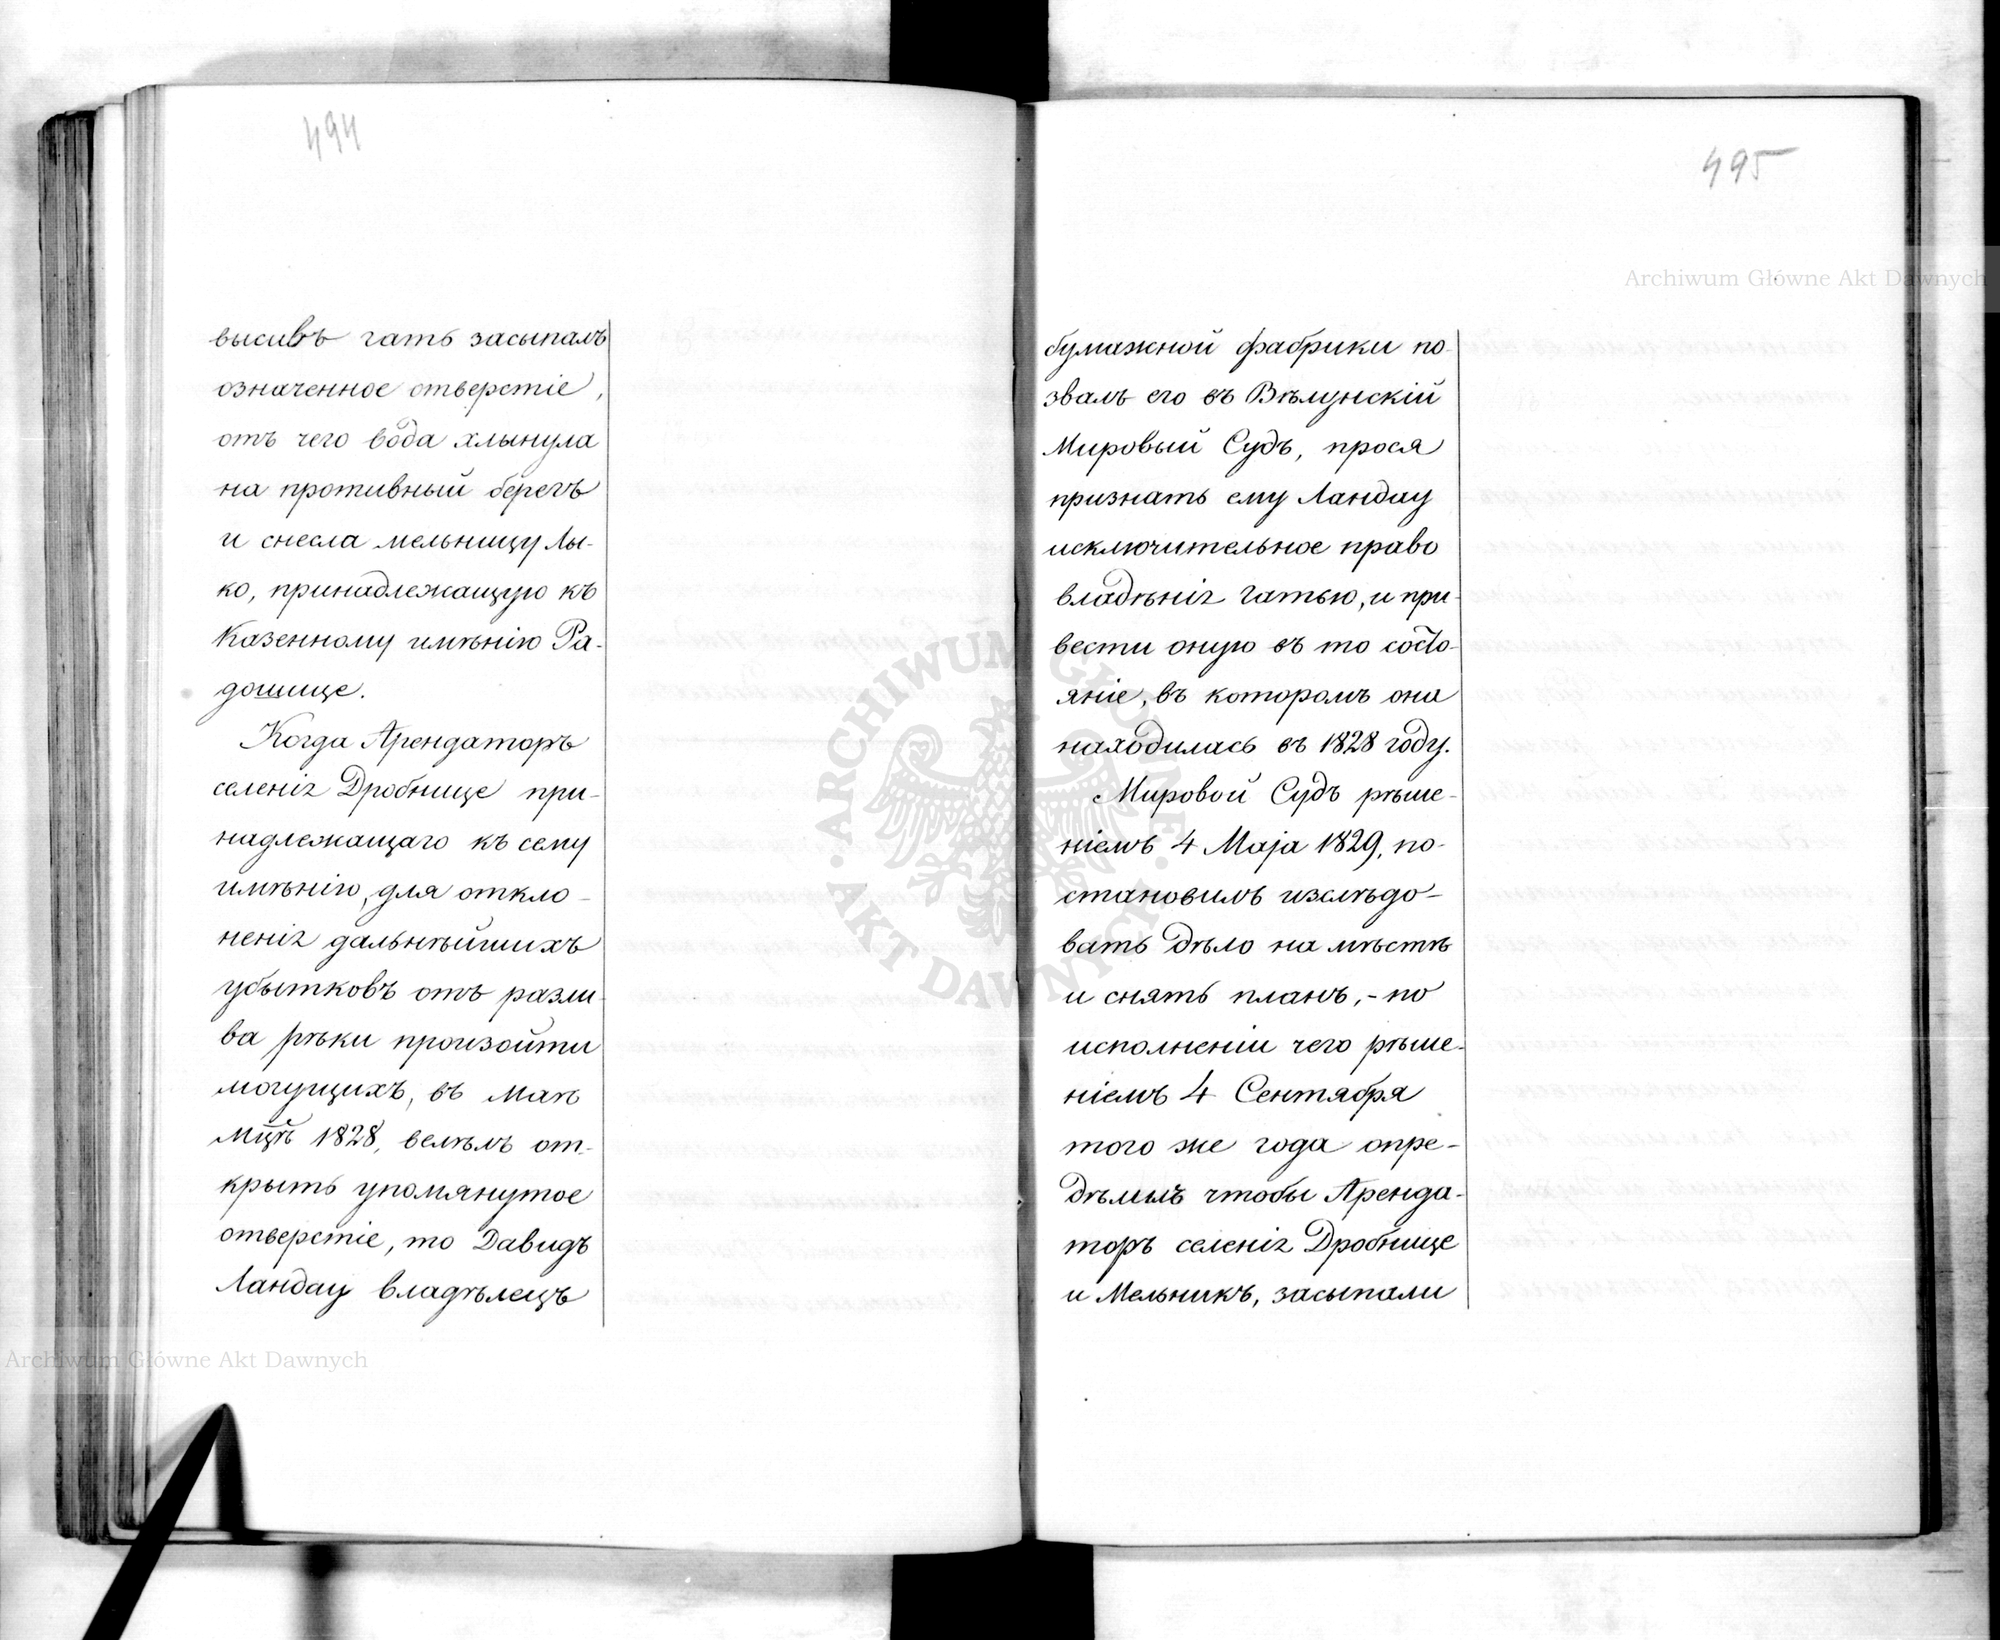 494
высивъ гать засыпалъ
означенное отверстіе,
отъ чего вода хлынула
на противный берегъ
и снесла мельницу Лы-
ко, принадлежащую къ
Казенному имѣнію Ра-
дошице.
Когда Арендаторъ
селенія Дробнице при-
надлежащаго къ сему
имѣнію, для откло-
ненія дальнѣйшихъ
убытковъ отъ разли-
ва рѣки произойти
могущихъ, въ Маѣ
Мцѣ 1828, велѣлъ от-
крыть упомянутое
отверстіе, то Давидъ
Ландау владѣлецъ
495
бумажной фабрики по-
звалъ его въ Вѣлунскій
Мировый Судъ, прося
признать ему Ландау
исключительное право
владѣнія гатью, и при-
вести оную въ то состо-
яніе, въ которомъ она
находилась въ 1828 году.
Мировой Судъ рѣше-
ніемъ 4 Маја 1829, по-
становилъ изслѣдо-
вать дѣло на мѣстѣ
и снять планъ, - по
исполненіи чего рѣше-
ніемъ 4 Сентября
того же года опре-
дѣлилъ чтобы Аренда-
торъ селенія Дробнице
и Мельникъ, засыпали
Archiwum Główne Akt Dawnych
Archiwum Główne Akt Dawnych
ARCHIWUM GŁÓWNE
AKT DAWNYCH